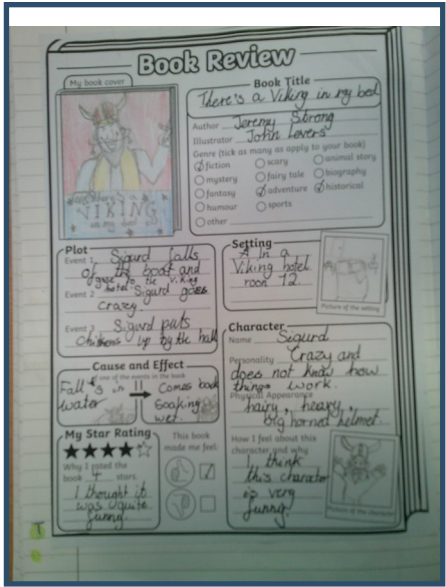 Book Review
My book cover
There's a
VIKING
in my bed
Book Title
There's a Viking in my bed
Author Jeremy Strong
Illustrator John Levers
Genre (tick as many as apply to your book)
fiction
scary
animal story
mystery
fairy tale
biography
fantasy
adventure
historical
humour
sports
other
Plot
Event 1 Sigurd falls
of the boat and
gose to the Viking
hotel.
Event 2 Sigurd goes
crazy.
Event 3 Sigurd puts
Chickens up by the
Setting
In a
Viking hotel.
room 12.
Picture of the setting
Cause and Effect
of one of the events in the book
Falls in
water
Comes back
soaking
wet.
Character
Name Sigurd
Personality Crazy and
does not know how
things work.
Physical Appearance
hairy, heavy,
big horned helmet.
How I feel about this
character and why
I think
this charator
is very
funny.
Picture of the character
My Star Rating
Why I rated the
book 4 stars.
I thought it
was quite
funny.
This book
made me feel: